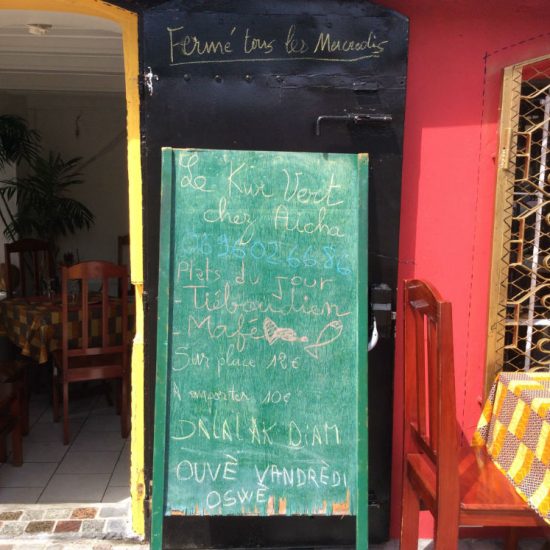 Fermé tous les Mercredis
Le Kür Vert
chez Aïcha
Plats du jour
- Tiéboudien
- Mafé
Sur place 12€
A emporter 10€
DALAL AK DIAM
OUVÈ VANDRÈDI
OSWÈ